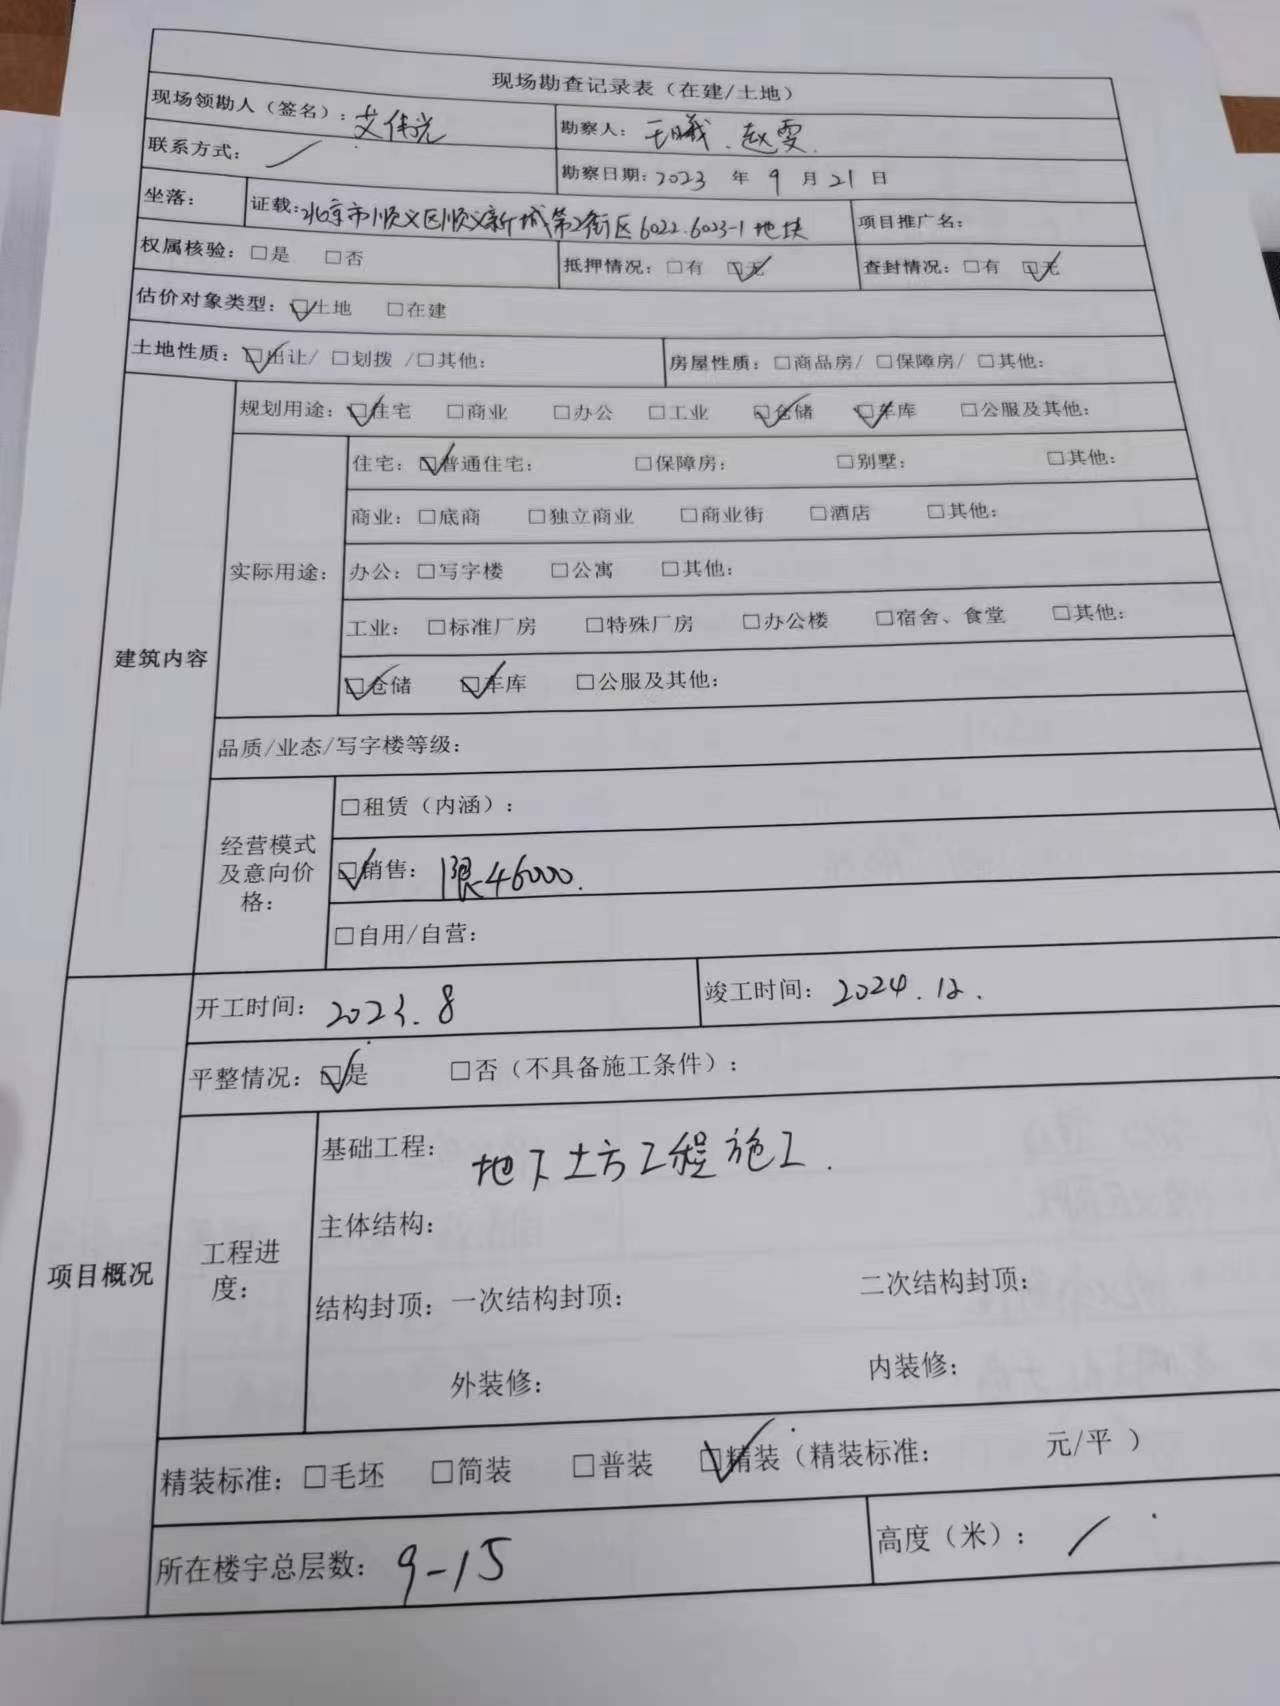 现场勘查记录表（在建/土地）
现场领勘人（签名）：艾伟光 勘察人：王曦、赵雯
联系方式：/ 勘察日期：2023 年 9 月 21 日
坐落： 证载：北京市顺义区顺义新城第2街区6022.6023-1地块 项目推广名：
权属核验：□是 □否 抵押情况：□有 ☑无 查封情况：□有 ☑无
估价对象类型：☑土地 □在建
土地性质：☑出让/ □划拨 /□其他： 房屋性质：□商品房/ □保障房/ □其他：
建筑内容
规划用途：☑住宅 □商业 □办公 □工业 ☑仓储 ☑车库 □公服及其他：
实际用途：
住宅：☑普通住宅： □保障房： □别墅： □其他：
商业：□底商 □独立商业 □商业街 □酒店 □其他：
办公：□写字楼 □公寓 □其他：
工业：□标准厂房 □特殊厂房 □办公楼 □宿舍、食堂 □其他：
☑仓储 ☑车库 □公服及其他：
品质/业态/写字楼等级：
经营模式
及意向价
格：
□租赁（内涵）：
☑销售：限46000.
□自用/自营：
项目概况
开工时间：2023.8 竣工时间：2024.12.
平整情况：☑是 □否（不具备施工条件）：
工程进
度：
基础工程：地下土方工程施工.
主体结构：
结构封顶：一次结构封顶： 二次结构封顶：
外装修： 内装修：
精装标准：□毛坯 □简装 □普装 ☑精装（精装标准： 元/平 ）
所在楼宇总层数：9-15 高度（米）：/